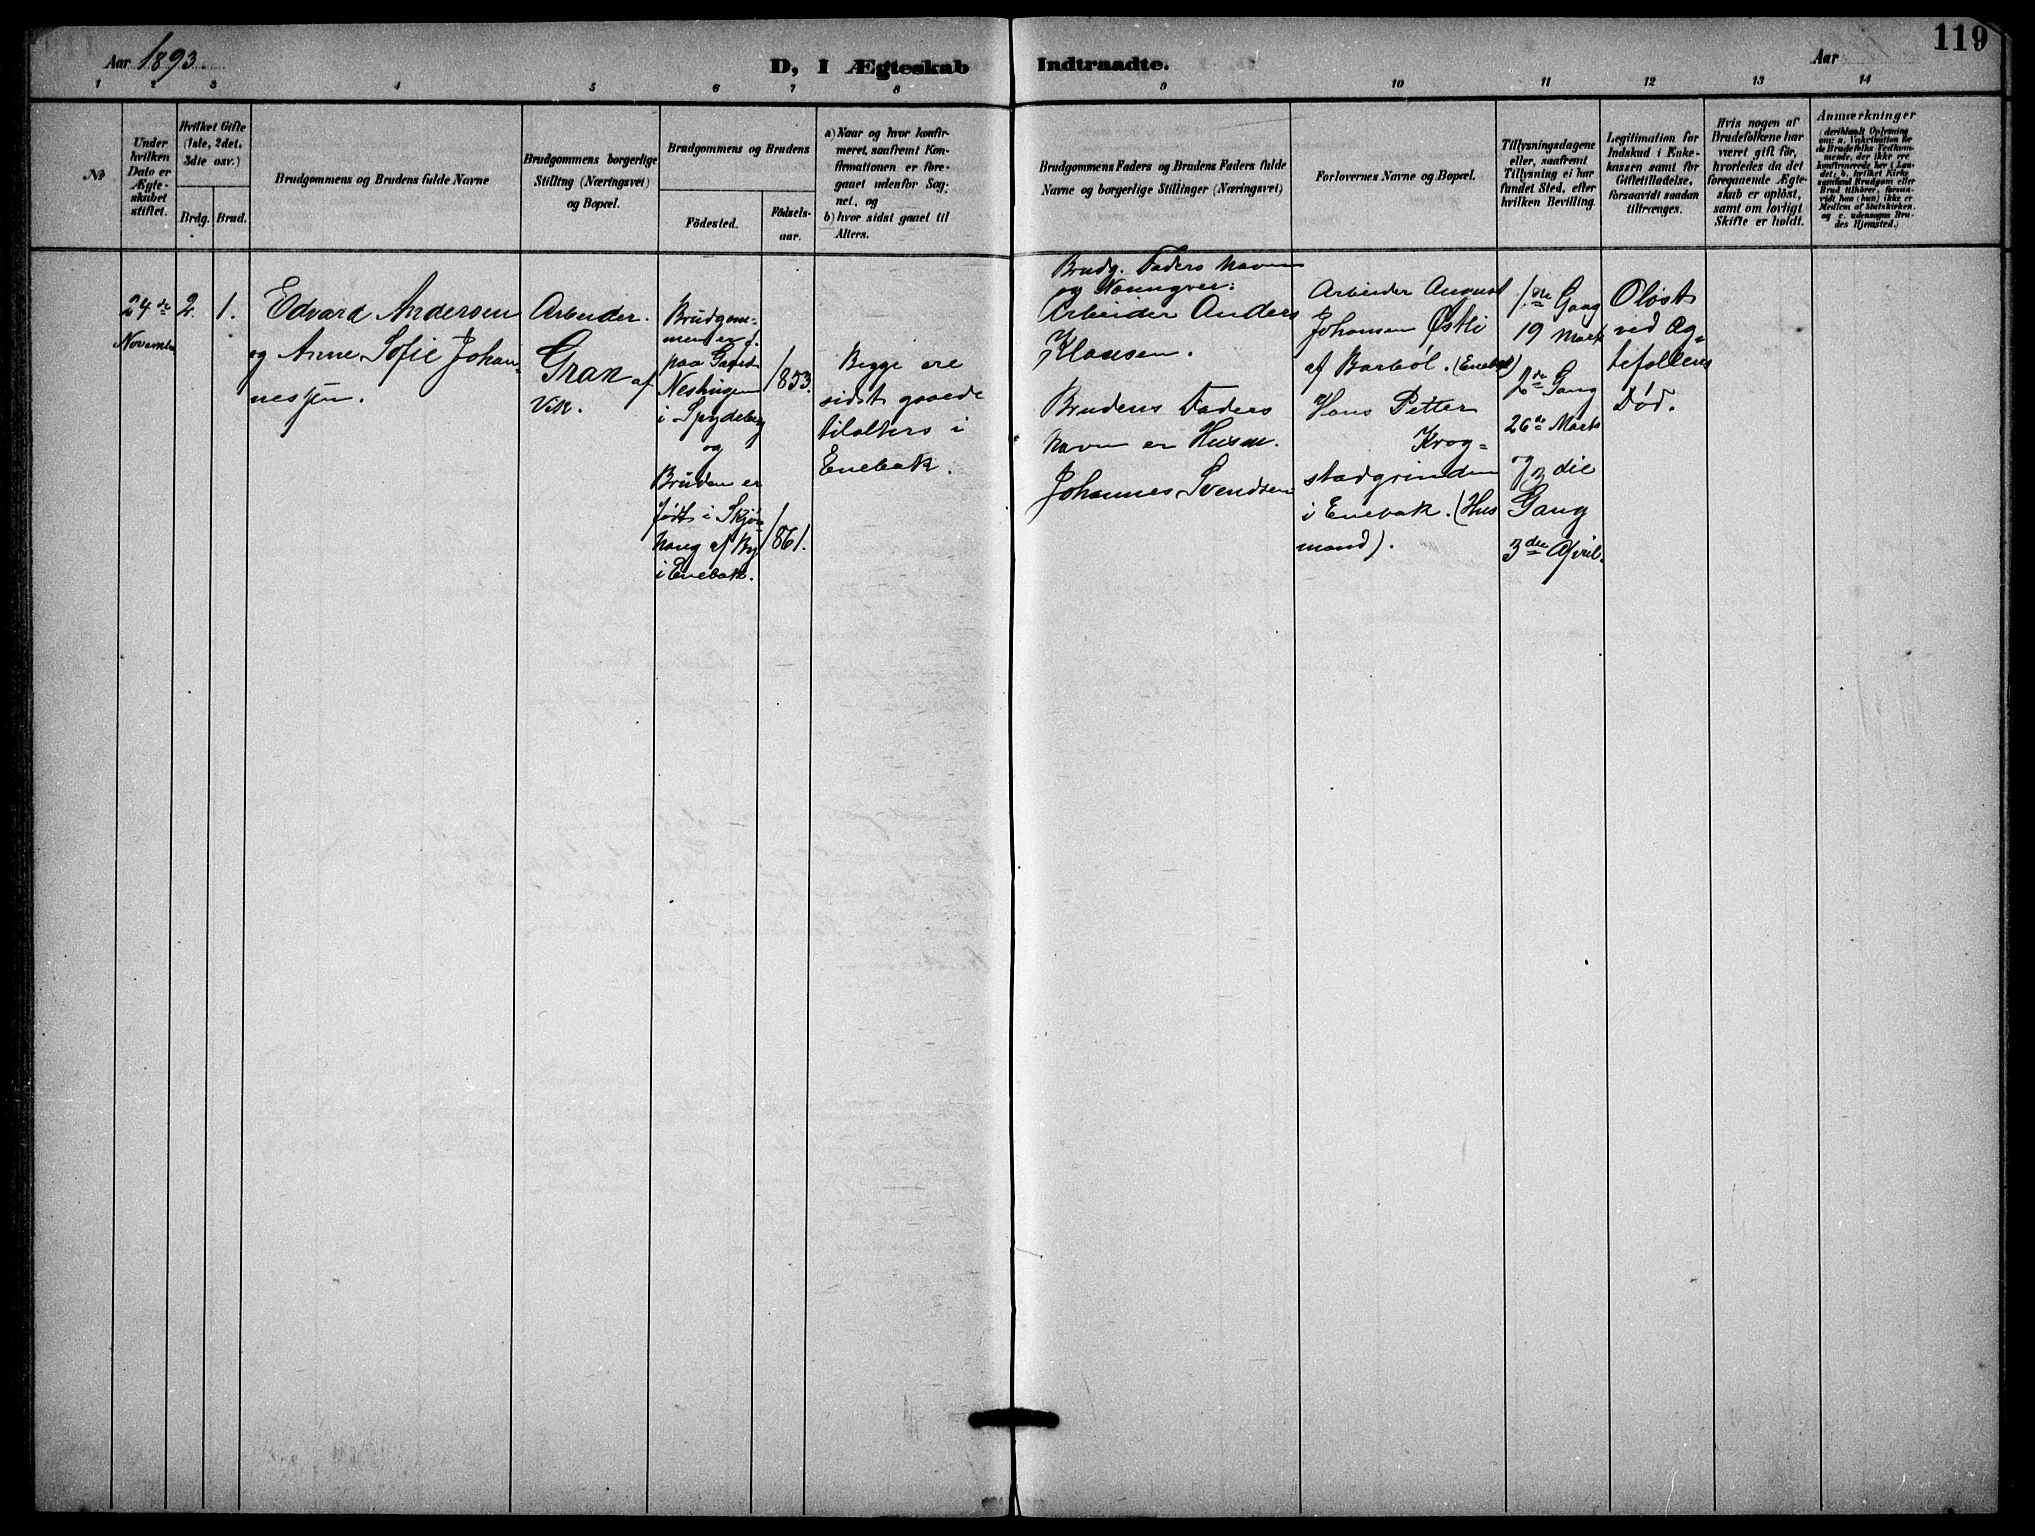 119
Aar 1893.
D, I Ægteskab Indtraadte.
Aar
1 2 3 4 5 6 7 8 9 10 11 12 13 14
No
Under
hvilken
Dato er
Ægte-
skabet
stiftet.
Hvilket Gifte
(1ste, 2det,
3die osv.)
Brdg. Brud.
Brudgommens og Brudens fulde Navne
Brudgommens borgerlige
Stilling (Næringsvei)
og Bopæl.
Brudgommens og Brudens
Fødested.
Fødsels-
aar.
a) Naar og hvor konfir-
meret, saafremt Kon-
firmationen er fore-
gaaet udenfor Sog-
net, og
b) hvor sidst gaaet til
Alters.
Brudgommens Faders og Brudens Faders fulde
Navne og borgerlige Stillinger (Næringsvei)
Forlovernes Navne og Bopæl.
Tillysningsdagene
eller, saafremt
Tillysning ei har
fundet Sted, efter
hvilken Bevilling.
Legitimation for
Indskud i Enke-
kassen samt for
Giftetilladelse,
forsaavidt saadan
tiltrænges.
Hvis nogen af
Brudefolkene har
været gift før,
hvorledes da det
foregaaende Ægte-
skab er opløst,
samt om lovligt
Skifte er holdt.
Anmærkninger
(deriblandt Oplysning
om: a. Vakcination for
de Brudefolks Vedkom-
mende, der ikke ere
konfirmerede her i Lan-
det; b. hvilket Kirke-
samfund Brudgom eller
Brud tilhører, forsaa-
vidt han (hun) ikke er
Medlem af Statskirken.
og c. udensogns Bru-
des Hjemsted.)
24de
Novemb
2. 1.
Edvard Andersen
og Anne Sofie Johan-
nesen.
Arbeider.
Gran af
Vik.
Brudgom-
men er f.
paa Gaard
i Spydeberg
og
Bruden er
født i Skjøn-
haug af By
i Enebak.
1853.
1861.
Begge ere
sidst gaaede
tilalters i
Enebak.
Brudg. Faders Navn
og Næringvei:
Arbeider Anders
Klausen.
Brudens Faders
Navn er Husm.
Johannes Svendsen
Arbeider August
Johansen Østli
af Barbøl. (Enebak)
Hans Petter
Krog-
stadgrinden
i Enebak. (Hus
mand).
1ste Gang
19 Marts
2de Gang
26de Marts
3die
Gang
3die April.
Oløst
ved Æg-
tefællens
Død.